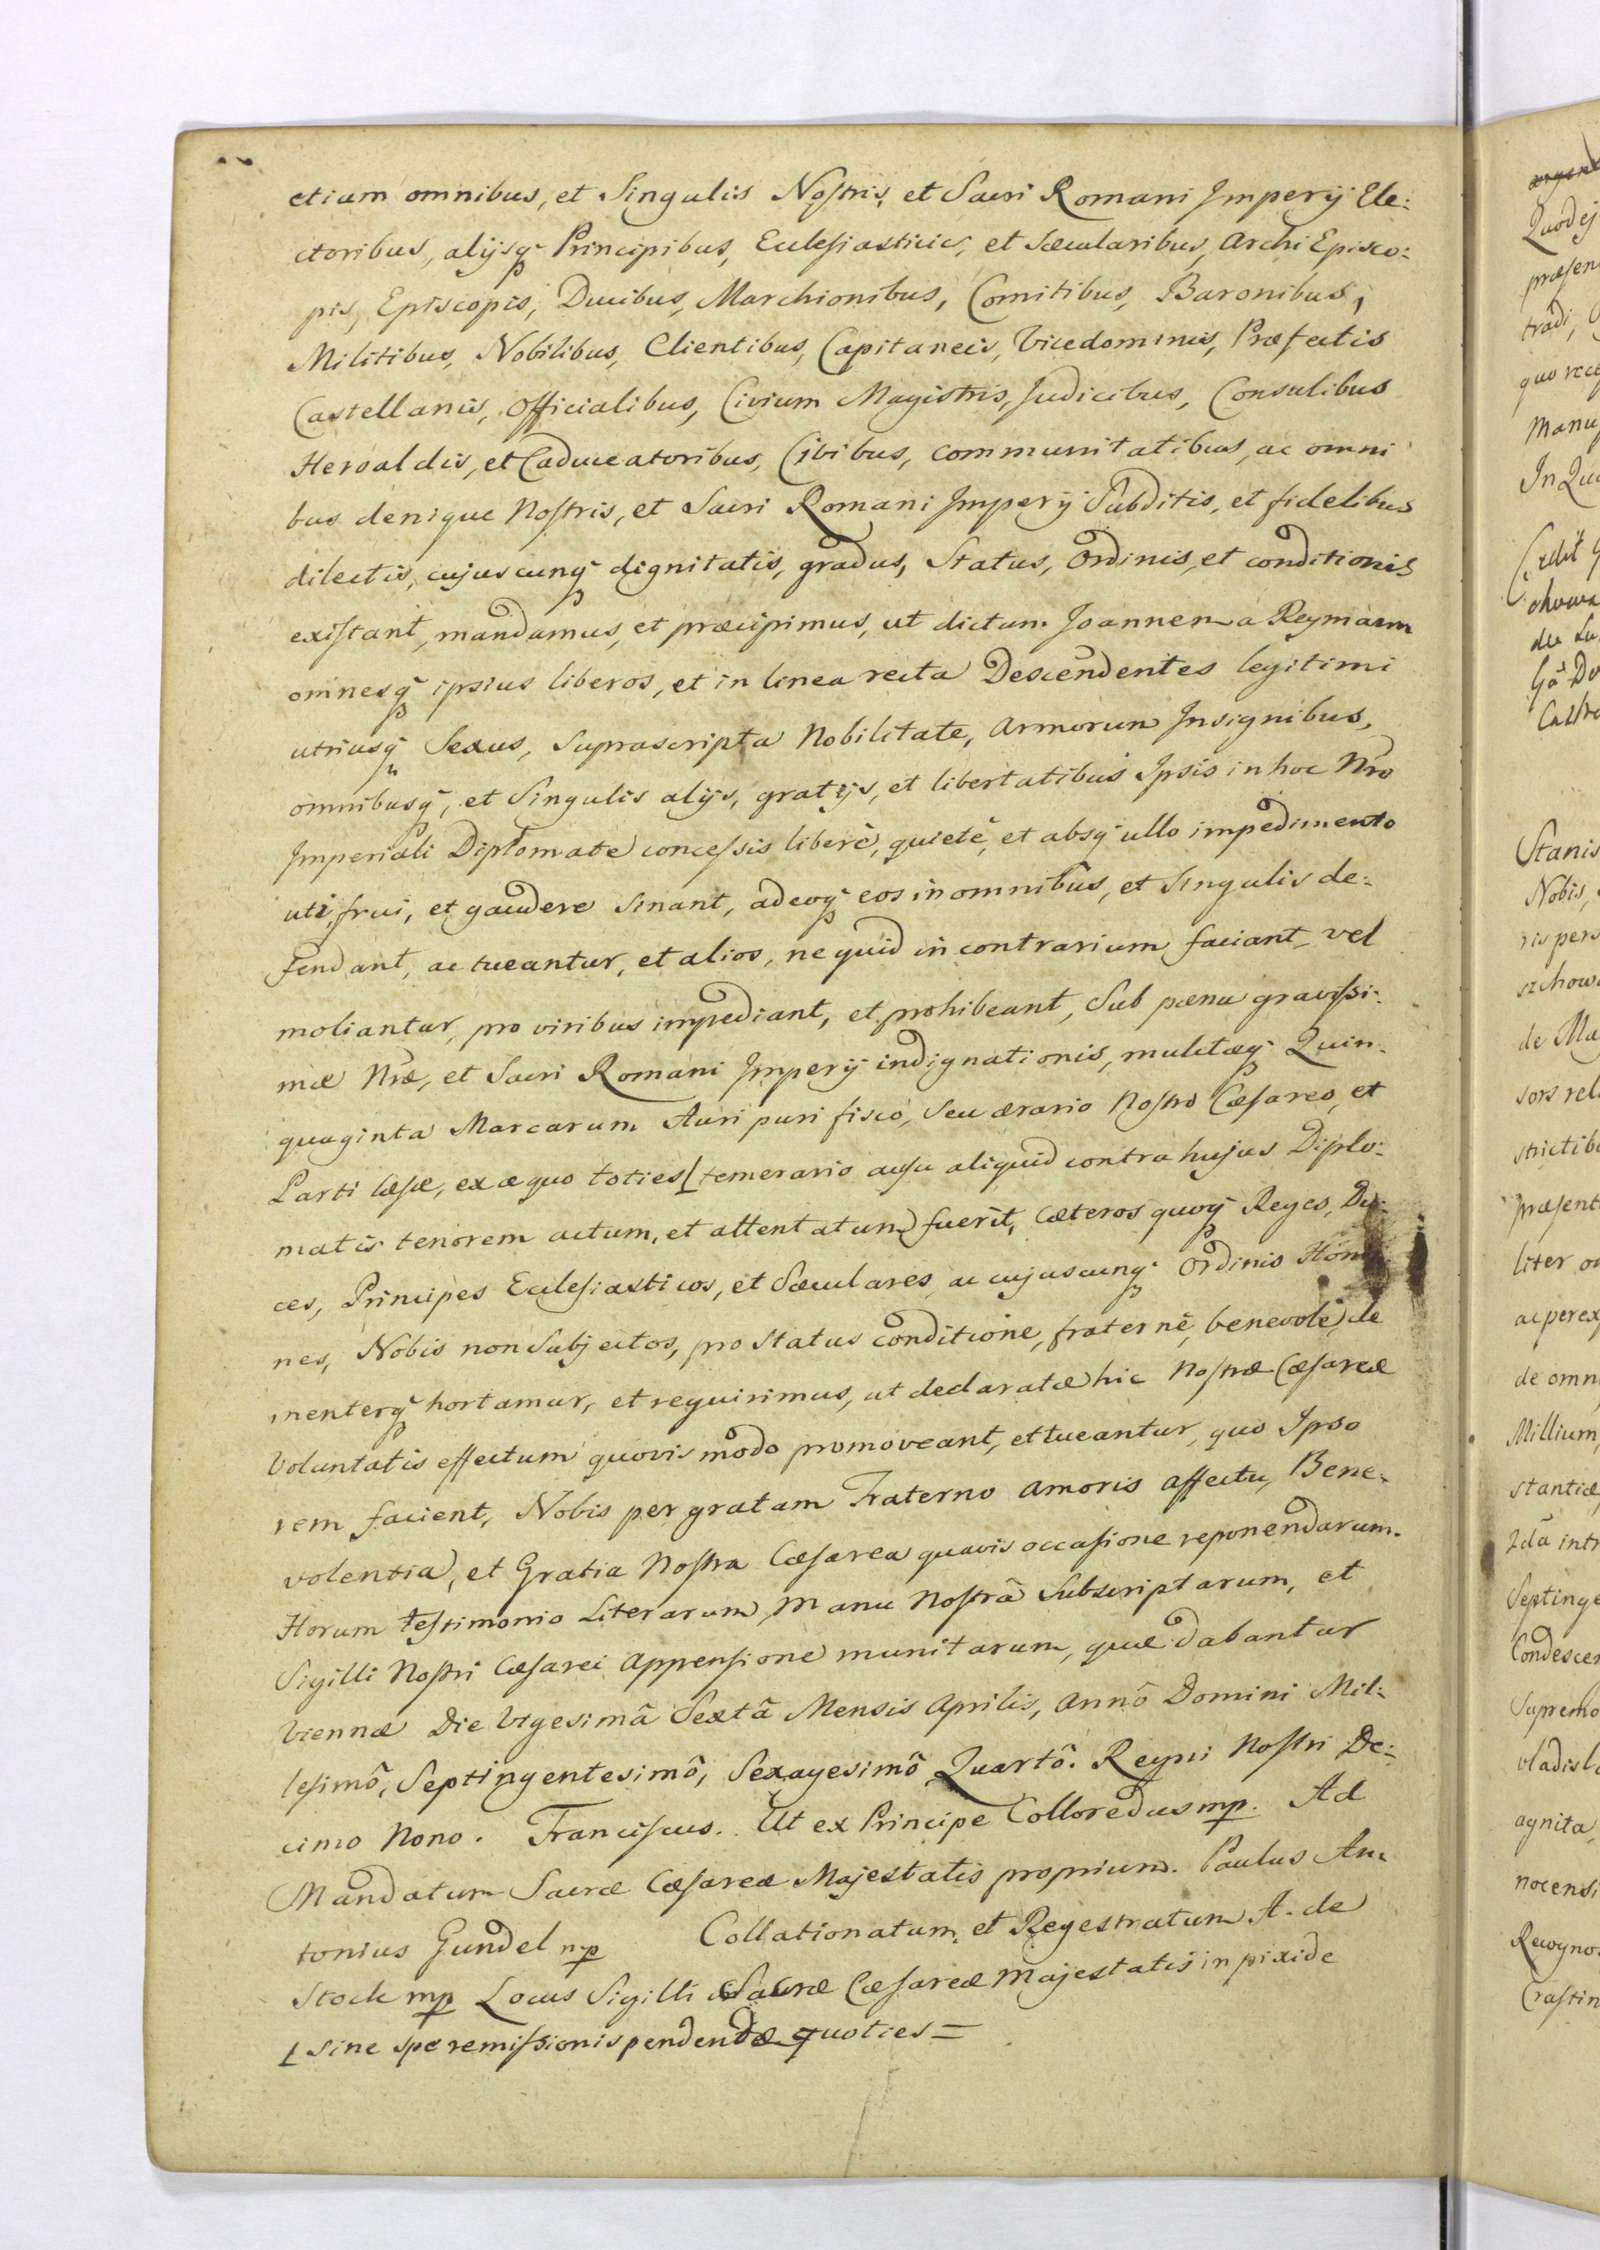 etiam omnibus, et Singulis Nostris, et Sacri Romani Imperÿ Ele:
ctoribus, alijsq̃ Principibus, Ecclesiasticis, et Sæcularibus, Archi Episco:
pis, Episcopis, Ducibus, Marchionibus, Comitibus, Baronibus,
Militibus, Nobilibus, Clientibus, Capitaneis, Vicedominis, Præfectis
Castellanis, Officialibus, Civium Magistris, Judicibus, Consulibus
Heroaldis, et Caduceatoribus, Civibus, communitatibus, ac omni
bus denique Nostris, et Sacri Romani Imperÿ Subditis, et fidelibus
dilectis, cujuscunq̃ dignitatis, gradus, Status, Ordinis, et conditionis
existant, mandamus, et præcipimus, ut dictum Joannem a Reymann
omnesq̃ ipsius liberos, et in linea recta Descendentes legitimi
utriusq̃ Sexus, Suprascripta Nobilitate, Armorum Insignibus,
omnibusq̃, et Singulis alijs, gratijs, et libertatibus Ipsis in hoc Nr̃o
Imperiali Diplomate concessis liberè, quietè, et absq̃ ullo impedimento
uti, frui, et gaudere Sinant, adeoq̃ eos in omnibus, et Singulis de:
fendant, ac tueantur, et alios, ne quid in contrarium faciant, vel
moliantur, pro viribus impediant, et prohibeant, Sub pæna gravissi:
mæ Nr̃æ, et Sacri Romani Imperÿ indignationis, mulctæq̃ Quin:
quaginta Marcarum Auri puri fisco, Seu ærario Nostro Cæsareo, et
Parti læsæ, ex æquo toties [ temerario ausu aliquid contra hujus Diplo:
matis tenorem actum, et attentatum fuerit, Cæteros quoq̃ Reges, Du:
ces, Principes Ecclesiasticos, et Sæculares, ac cujuscunq̃ Ordinis Homi
nes, Nobis non Subjectos, pro Status conditione, fraternè, benevolè, cle
menterq̃ hortamur, et requirimus, ut declaratæ hic Nostræ Cæsareæ
Voluntatis effectum quovis modo promoveant, et tueantur, quo Ipso
rem facient, Nobis per gratam Fraterno Amoris affectu, Bene:
volentia, et Gratia Nostra Cæsarea quavis occasione reponendarum.
Horum testimonio Literarum Manu Nostrâ Subscriptarum, et
Sigilli Nostri Cæsarei Appensione munitarum, quæ dabantur
Viennæ Die Vigesimâ Sextâ Mensis Aprilis, Annô Domini Mil:
lesimô, Septingentesimô, Sexagesimô Quartô. Regni Nostri De:
cimo Nono. Franciscus. Ut ex Principe Colloredus mp. Ad
Mandatum Sacræ Cæsareæ Majestatis proprium. Paulus An:
tonius Gundel mp Collationatum, et Regestratum A. de
Stock mp Locus Sigilli Sacræ Cæsareæ Majestatis in pixide
[ Sine spe remissionis pendendæ quoties =